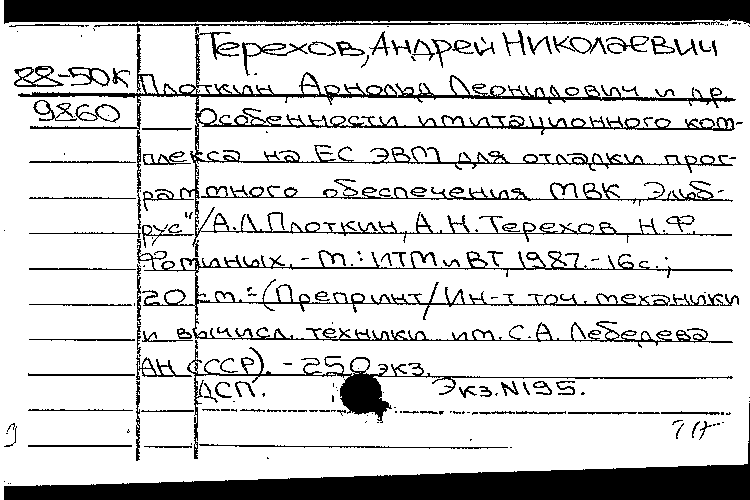 Терехов, Андрей Николаевич
88-50К Плоткин, Арнольд Леонидович и др.
9860 Особенности имитационного ком-
плекса на ЕС ЭВМ для отладки прог-
раммного обеспечения МВК „Эльб-
рус"/А.Л.Плоткин, А.Н.Терехов, Н.Ф.
Фоминых. - М.: ИТМиВТ, 1987.-16с.;
20 см.-(Препринт/Ин-т точ. механики
и вычисл. техники им. С.А. Лебедева
АН СССР). - 250 экз.
ДСП. Экз.N195.